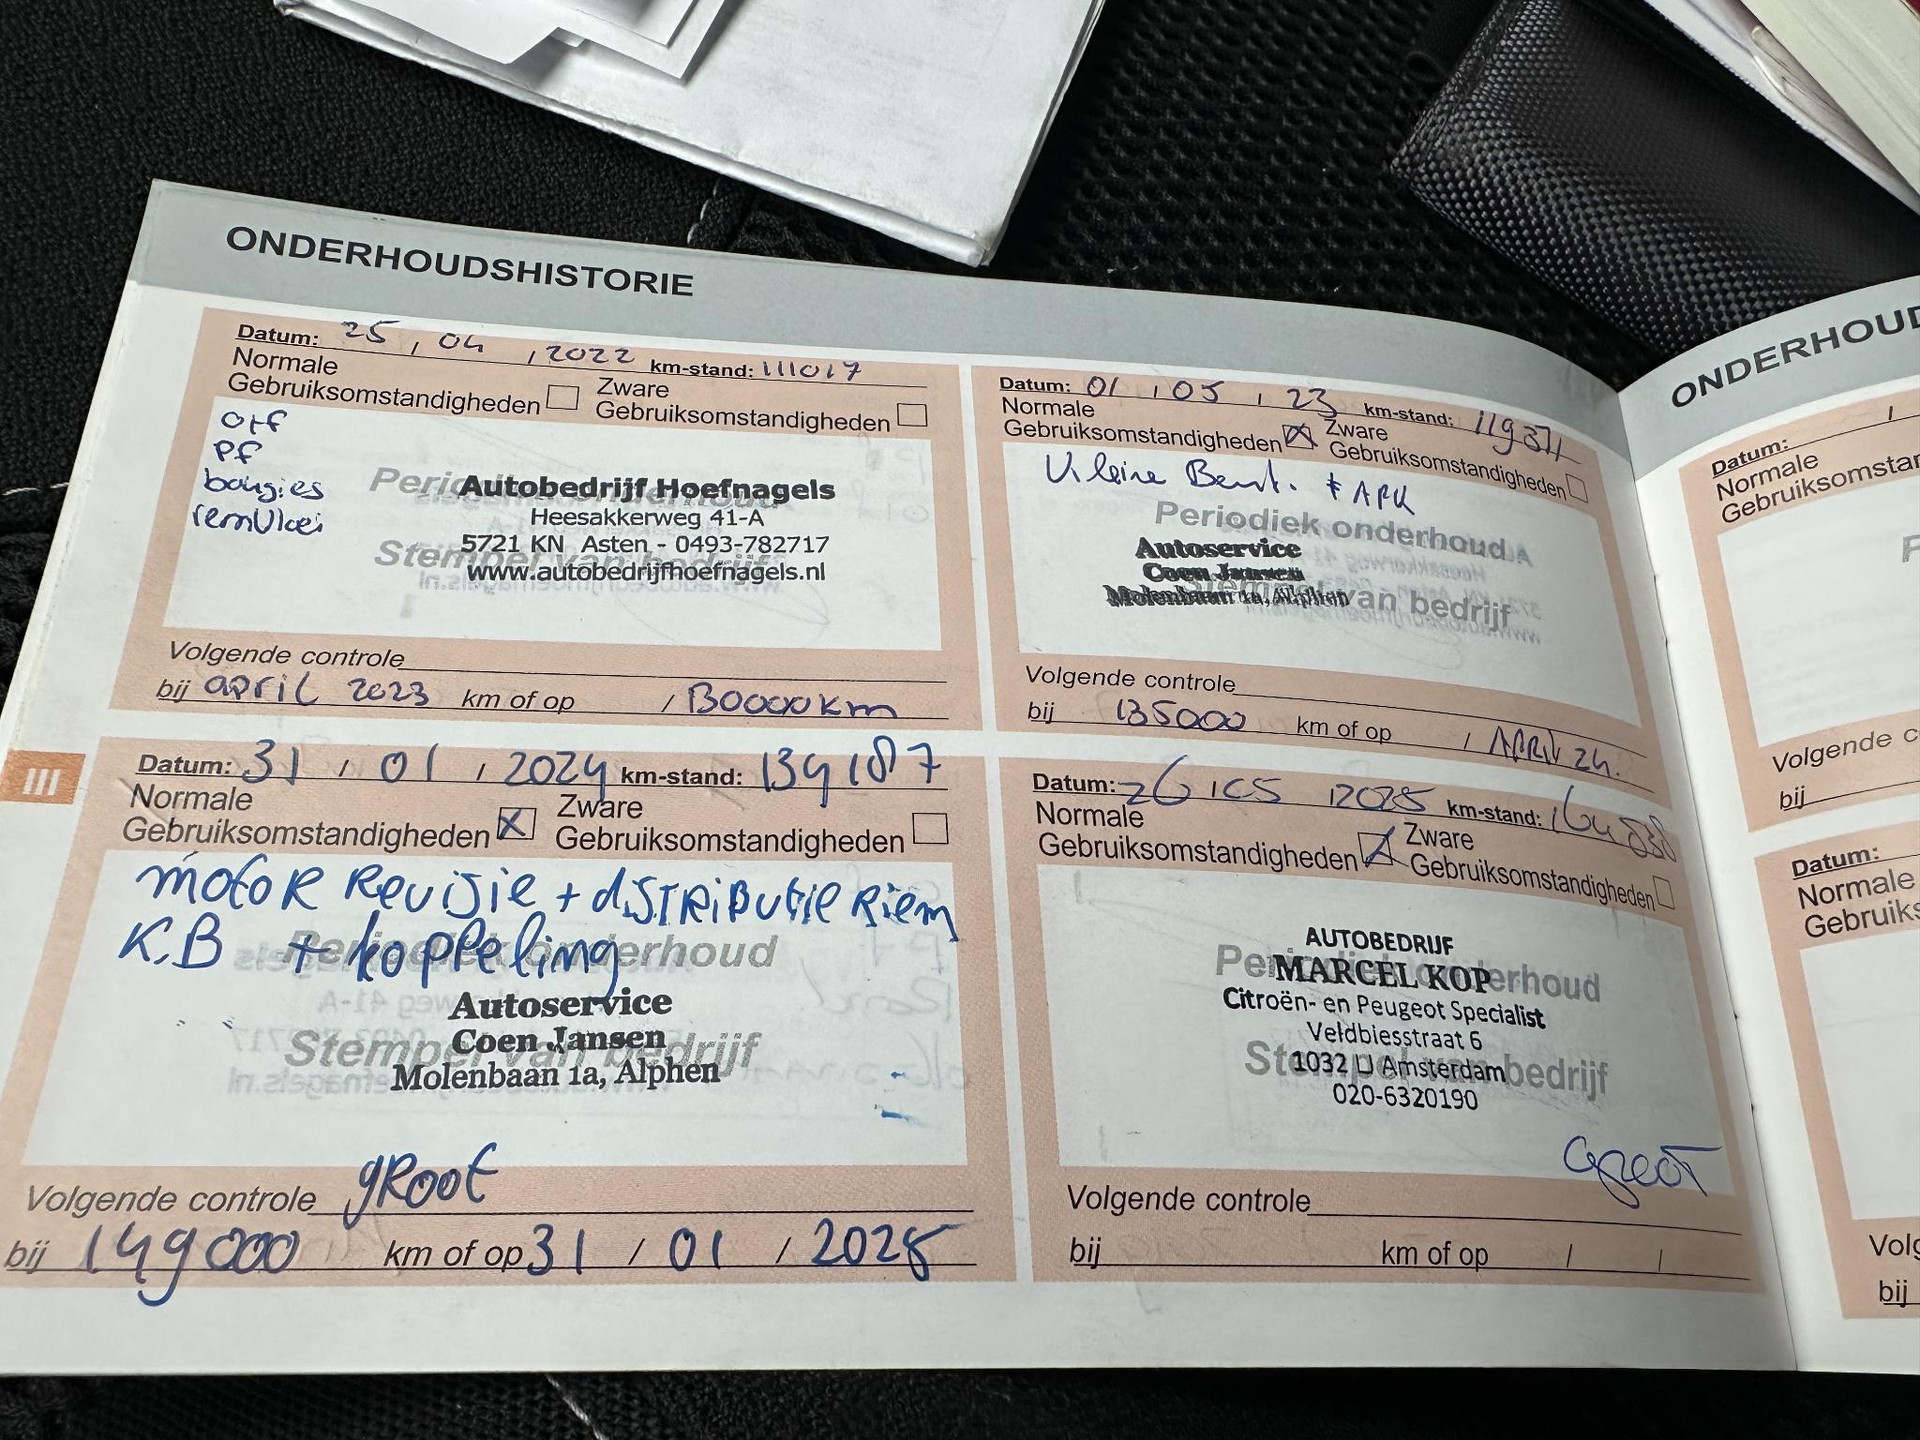 ONDERHOUDSHISTORIE
Datum: 25 / 04 / 2022 km-stand: 111017
Normale
Gebruiksomstandigheden
Zware
Gebruiksomstandigheden
o+f
pf
bougies
remvloei
Periodiek onderhoud
Stempel van bedrijf
Autobedrijf Hoefnagels
Heesakkerweg 41-A
5721 KN Asten - 0493-782717
www.autobedrijfhoefnagels.nl
Volgende controle
bij april 2023 km of op / 130000km
Datum: 01 / 05 / 23 km-stand: 119371
Normale
Gebruiksomstandigheden
Zware
Gebruiksomstandigheden
Kleine Beurt. + APK
Periodiek onderhoud
Stempel van bedrijf
Autoservice
Coen Jansen
Molenbaan 1a, Alphen
Volgende controle
bij 135000 km of op / APRIL 24.
III
Datum: 31 / 01 / 2024 km-stand: 134187
Normale
Gebruiksomstandigheden
Zware
Gebruiksomstandigheden
motor Revisie + distributie Riem
K.B + koppeling
Periodiek onderhoud
Stempel van bedrijf
Autoservice
Coen Jansen
Molenbaan 1a, Alphen
Volgende controle gRoot
bij 149000 km of op 31 / 01 / 2025
Datum: 26 / 05 / 2025 km-stand:
Normale
Gebruiksomstandigheden
Zware
Gebruiksomstandigheden
Periodiek onderhoud
Stempel van bedrijf
AUTOBEDRIJF
MARCEL KOP
Citroën- en Peugeot Specialist
Veldbiesstraat 6
1032 LJ Amsterdam
020-6320190
Groot
Volgende controle
bij km of op / /
ONDERHOUD
Datum: /
Normale
Gebruiksomstan
Volgende c
bij
Datum:
Normale
Gebruiks
Volg
bij